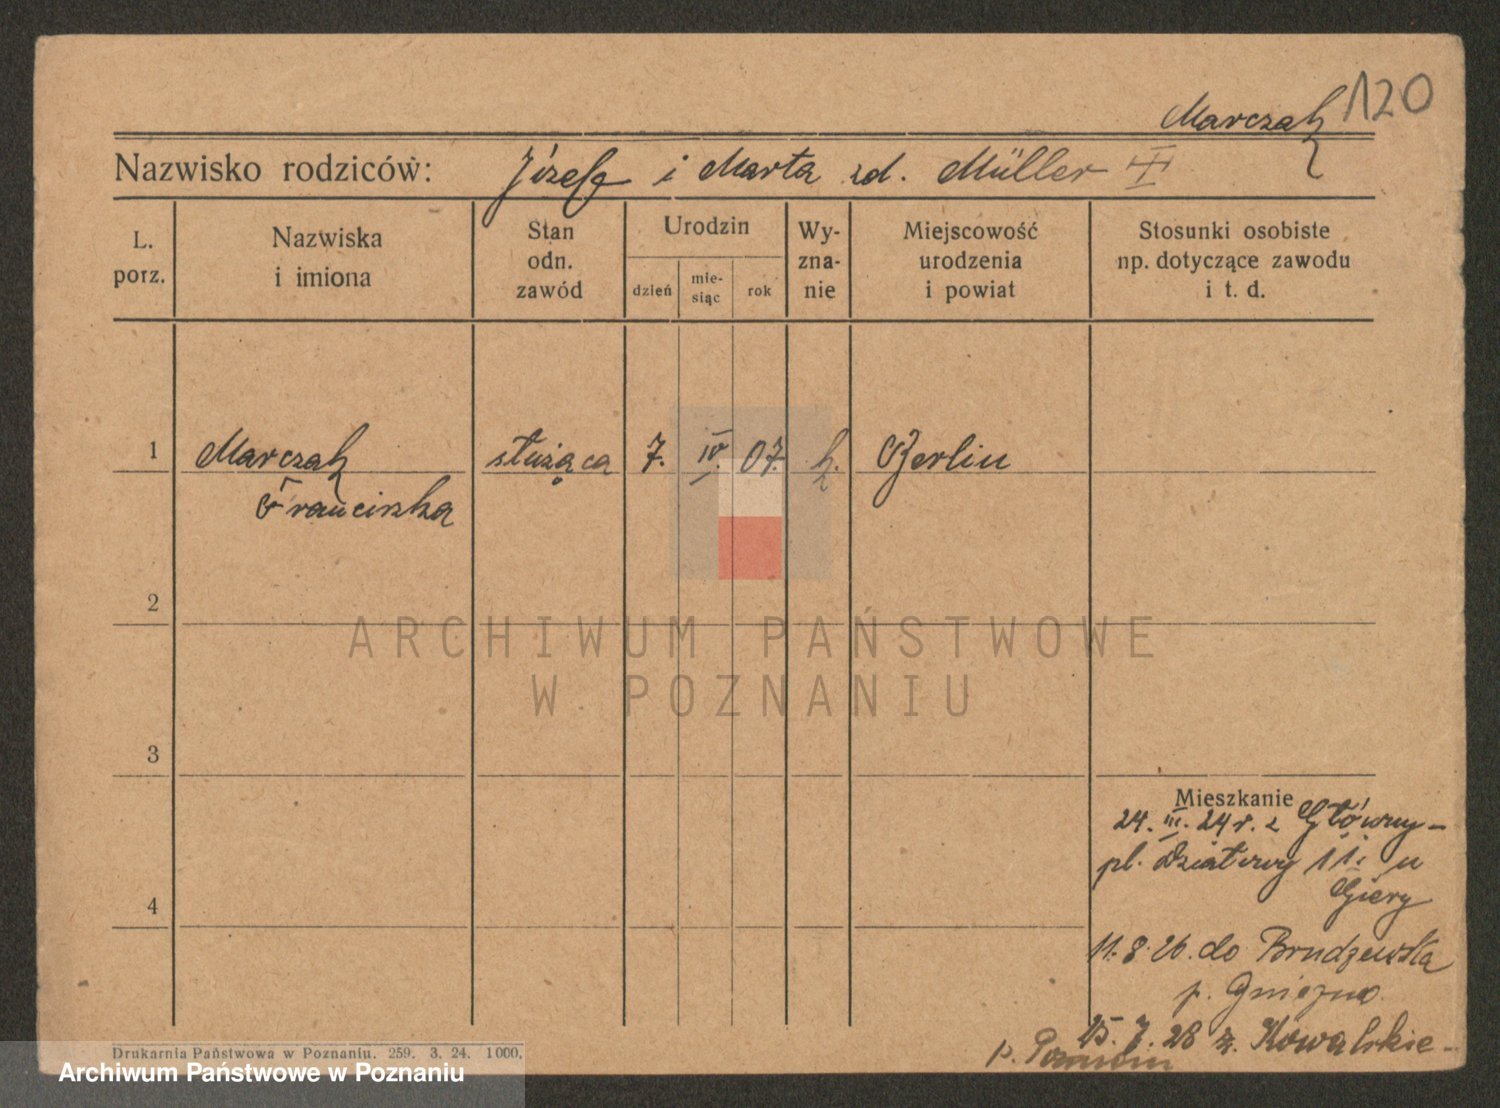 120
Marczak
Nazwisko rodziców: Józef i Marta zd. Müller
L. porz.
Nazwiska i imiona
Stan odn. zawód
Urodzin
dzień
mie-
siąc
rok
Wy-
zna-
nie
Miejscowość
urodzenia
i powiat
Stosunki osobiste
np. dotyczące zawodu
i t. d.
1 Marczak służąca 7. IV. 07. k. Berlin
Franciszka
2
ARCHIWUM PAŃSTWOWE
W POZNANIU
3
Mieszkanie
24. III. 24 r. z Główny-
pl. Działowy 11. u
4
Giery
11. 8. 26. do Brudzewska
p. Gniezno.
25. 7. 28 z. Kowalskie-
p. Poznań
Drukarnia Państwowa w Poznaniu. 259. 3. 24. 1000.
Archiwum Państwowe w Poznaniu